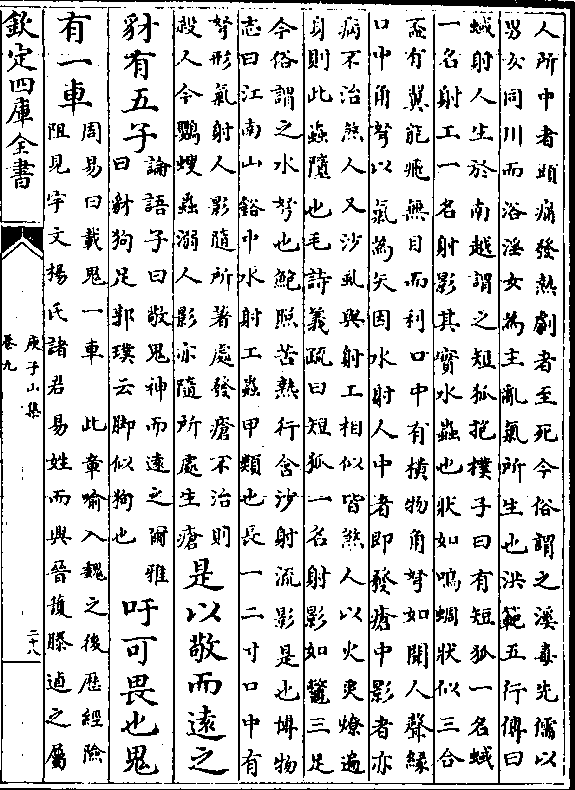 人所中者頭痛發熱劇者至死今俗謂之溪毒先儒以
男女同川而浴淫女為主亂氣所生也洪範五行傳曰
蜮射人生於南越謂之短狐抱樸子曰有短狐一名蜮
一名射工一名射影其實水蟲也狀如鳴蜩狀似三合
盃有翼能飛無目而利口中有橫物角弩如聞人聲緣
口中角弩以氣為矢因水射人中者即發瘡中影者亦
病不治煞人又沙虱與射工相似皆煞人以火炙燎遍
身則此蟲隨也毛詩義疏曰短狐一名射影如鼈三足
今俗謂之水弩也鮑照苦熱行含沙射流影是也博物
志曰江南山谿中水射工蟲甲類也長一二寸口中有
弩形氣射人影隨所著處發瘡不治則
殺人今鸚螋蟲溺人影亦隨所處生瘡
是以敬而遠之
論語子曰敬鬼神而遠之爾雅
豺有五子
曰豺狗足郭璞云脚似狗也
吁可畏也鬼
有一車
周易曰載鬼一車 此章喻入魏之後歷經險
阻見宇文楊氏諸君易姓而興晉護滕逌之屬
欽定四庫全書
庾子山集
卷九
二十八